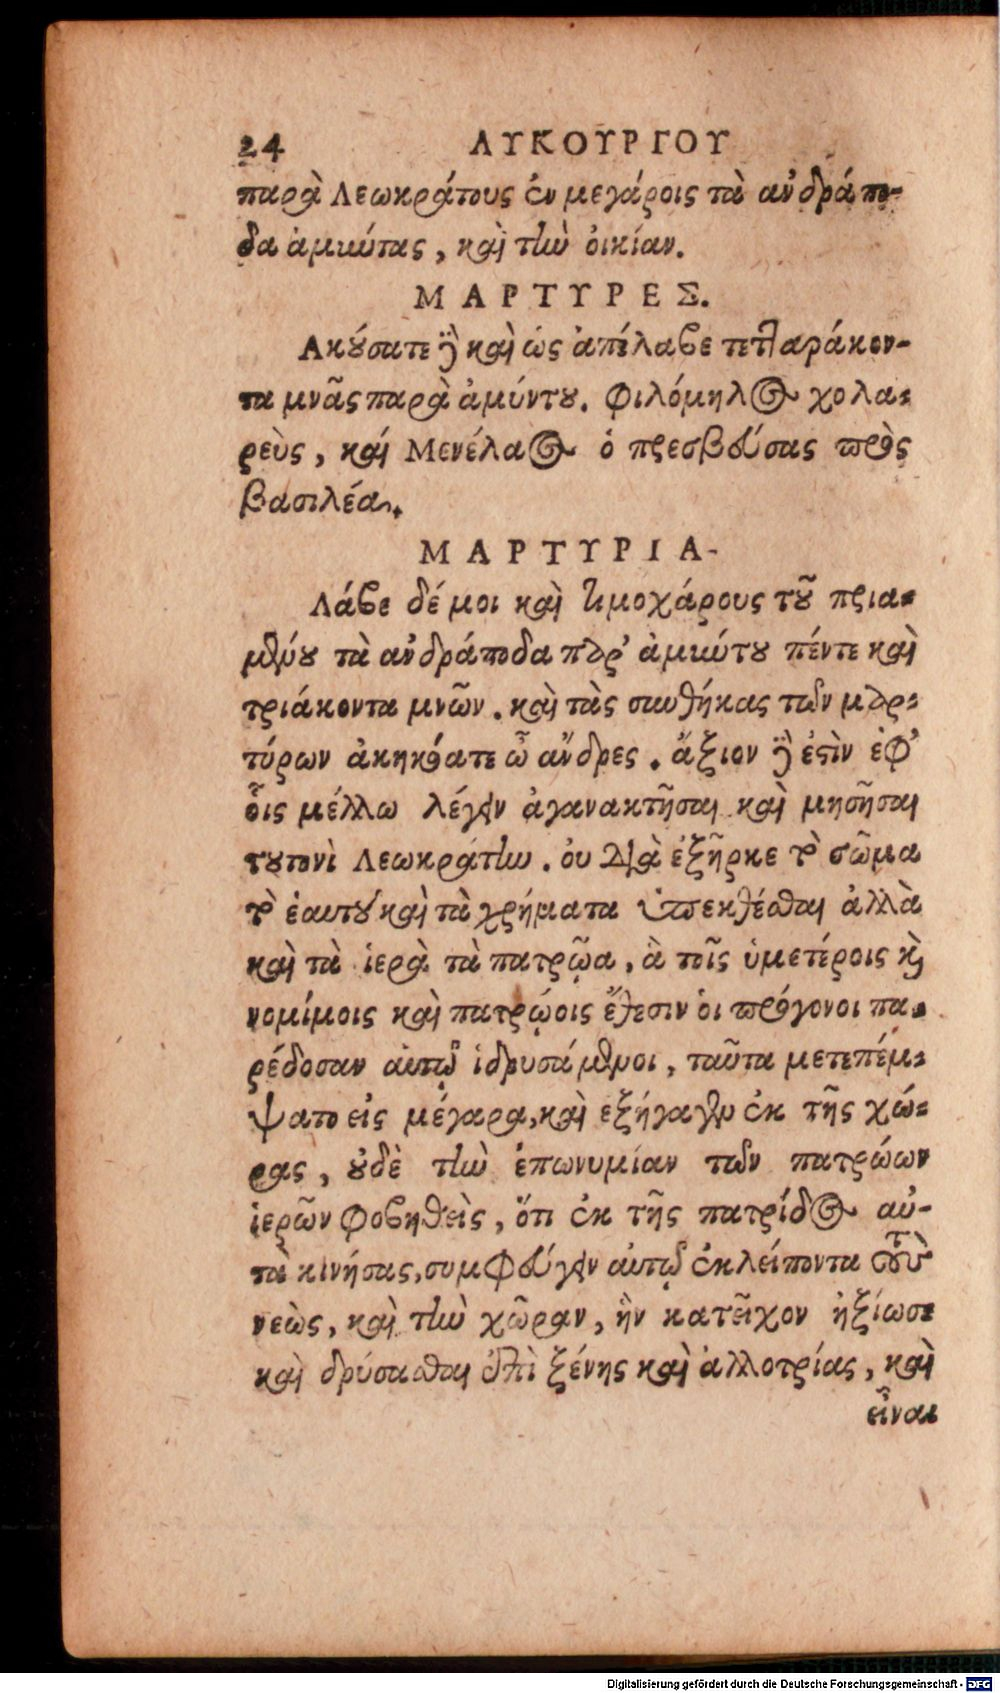 24 ΛΥΚΟΥΡΓΟΥ
παρὰ Λεωκράτους ἐν μεγάροις τὰ ἀνδράπο-
δα ἀμιώτας, καὶ τὴν ὀικίαν.
ΜΑΡΤΥΡΕΣ.
Ακούσατε ἢ καὶ ὡς ἀπέλαβε τετ]αράκον-
τα μνᾶς παρὰ ἀμύντου. Φιλόμηλος χολα-
ρεὺς, καί Μενέλαος ὁ πρεσβεύσας πρὸς
βασιλέα.
ΜΑΡΤΥΡΙΑ-
Λάβε δέ μοι καὶ τιμοχάρους τοῦ πρια-
μένου τὰ ἀνδράποδα παρ’ ἀμιώτου πέντε καὶ
τριάκοντα μνῶν. καὶ τὰς συνθήκας τῶν μαρ-
τύρων ἀκηκόατε ὦ ἄνδρες. ἄξιον ἢ ἐστὶν ἐφ’
οἷς μέλλω λέγειν ἀγανακτῆσαι καὶ μησῆσαι
τουτονὶ Λεωκράτην. ὀυ γὰ ἐξῆρκε τὸ σῶμα
τὸ ἑαυτού καὶ τὰ χρήματα ὑπεκθέσθαι ἀλλὰ
καὶ τὰ ἱερὰ τὰ πατρῷα, ἃ τοῖς ὑμετέροις καὶ
νομίμοις καὶ πατρῴοις ἔθεσιν ὁι πρόγονοι πα-
ρέδοσαν ἀυτῷ ἱδρυσάμενοι, ταῦτα μετεπέμ-
ψατο εἰς μέγαρα, καὶ εξήγαγεν ἐκ τῆς χώ-
ρας, οὐδὲ τὴν ἐπωνυμίαν τῶν πατρώων
ἱερῶν φοβηθεὶς, ὅτι ἐκ τῆς πατρίδος αὐ-
τὰ κινήσας, συμφεύγειν ἀυτῷ ἐκλείποντα τοὺς
νεὼς, καὶ τὴν χῶραν, ἣν κατεῖχον ἠξίωσε
καὶ δρύσασθαι ἐπὶ ξένης καὶ ἀλλοτρίας, καὶ
εἶναι
Digitalisierung gefördert durch die Deutsche Forschungsgemeinschaft - DFG